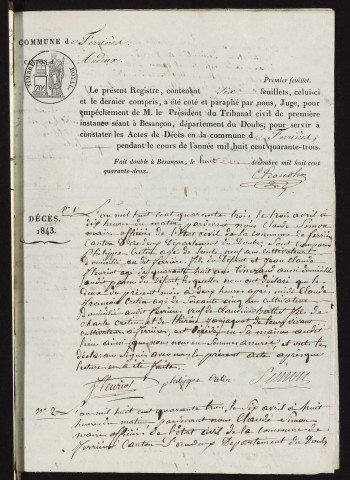 COMMUNE de Ferrières
CANTON d'Audeux
TIMBRE ROYAL
Premier feuillet.
Le présent Registre, contenant Six feuillets, celui-ci
et le dernier compris, a été coté et paraphé par nous, Juge, pour
empêchement de M. le Président du Tribunal civil de première
instance séant à Besançon, département du Doubs, pour servir à
constater les Actes de Décès en la commune de Ferrières
pendant le cours de l'année mil huit cent quarante-trois.
Fait double à Besançon, le huit décembre mil huit cent
quarante-deux.
DÉCÈS.
1843.
N° 1er
L'an mil huit cent quarante trois, le trois avril à
dix heures du matin, pardevant nous Claude Simon
maire officier de l'état civil de la commune de
Canton d'audeux Département du Doubs, sont comparus
Philippe Cretin agé de neuf ans cultivateur
Domicilié audit ferrières, fils du Défunt et Jean Claude
fleuriot agé de quarante huit ans aussi domicilié
lesquels nous ont déclaré que le
du présent mois à deux heures après midi Claude
François Cretin agé de soixante cinq ans cultivateur
Domicilié audit ferrières
Charles Cretin et de
à ferrières, est décédé en sa maison audit
lieu ainsi que nous nous en sommes assuré et ont les
déclarans signés avec nous le présent acte après que
lecture en a été faite.
fleuriot philippe Cretin Simon
N° 2
L'an mil huit cent quarante trois, le Six avril à huit
heures du matin pardevant nous Claude Simon
maire officier de l'état civil de la commune de
ferrières Canton D'audeux Département du Doubs